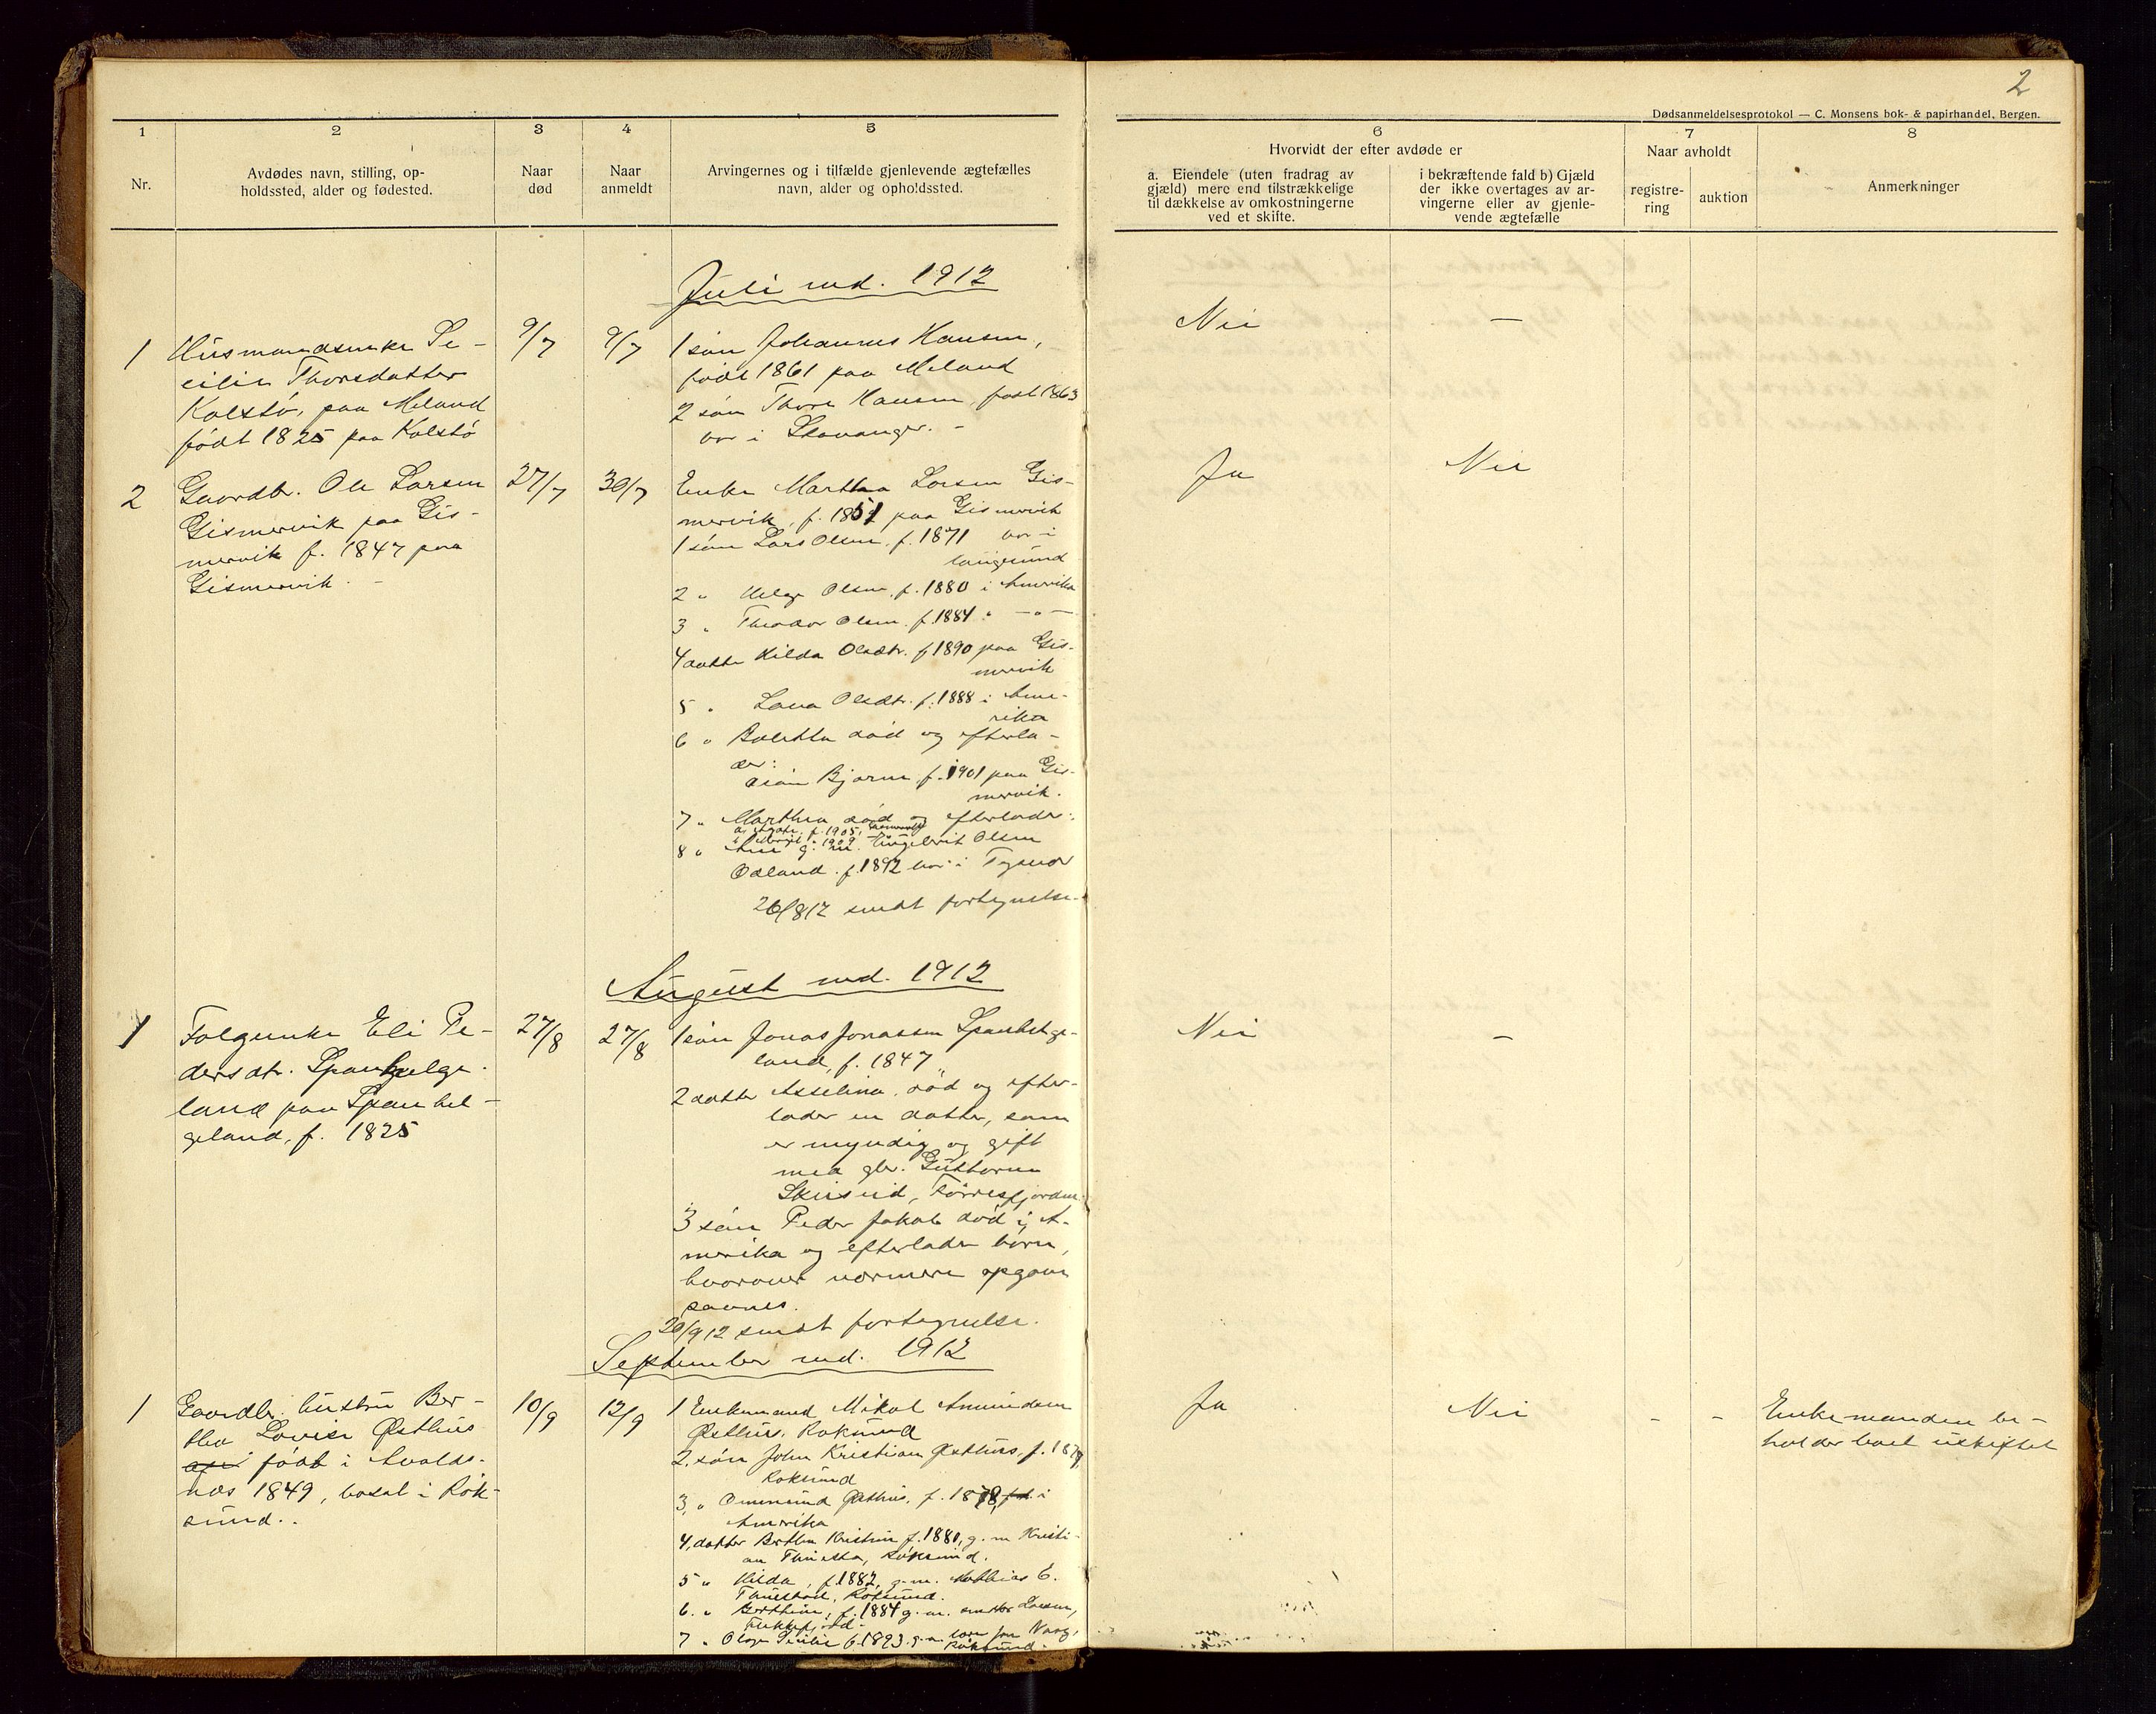 2
Dødsanmeldelsesprotokol — C. Monsens bok- & papirhandel, Bergen.
1
2
3
4
5
6
7
8
Nr.
Avdødes navn, stilling, op-
holdssted, alder og fødested.
Naar
død
Naar
anmeldt
Arvingernes og i tilfælde gjenlevende ægtefælles
navn, alder og opholdssted.
Hvorvidt der efter avdøde er
a. Eiendele (uten fradrag av
gjæld) mere end tilstrækkelige
til dækkelse av omkostningerne
ved et skifte.
i bekræftende fald b) Gjæld
der ikke overtages av ar-
vingerne eller av gjenle-
vende ægtefælle
Naar avholdt
registre-
ring
auktion
Anmerkninger
Juli md. 1912
1
Husmandsenke Se-
cilie Thorsdatter
Kolstö, paa Meland
födt 1825 paa Kolstö
9/7
9/7
1 sön Johannes Hansen,
födt 1861 paa Meland
2 sön Thore Hansen, födt 1863
bor i Stavanger. -
Nei
—
2
Gaardbr. Ole Larsen
Gismervik paa Gis-
mervik f. 1847 paa
Gismervik. -
27/7
30/7
Enke Martha Larsen Gis-
mervik, f. 1851 paa Gismervik
1 sön Lars Olsen, f. 1871 bor i
Langesund
2 " Helge Olsen, f. 1880 i Amerika
3 " Theodor Olsen, f. 1884 " — " —
4 datter Hilda Olsdtr. f. 1890 paa Gis-
mervik
5 " Lava Olsdtr. f. 1888 i Ame-
rika
6 " Boletta död og efterla-
der:
sön Bjarne, f. 1901 paa Gis-
mervik.
7 " Marthea död og efterlader:
a, f. 1905,
f. 1909
8 " g. m. Engelbrit Olsen
Odland. f. 1892 bor i Tysvær
26/8 12 sendt fortegnelse.
Ja
Nei
August md. 1912
1
Folgeenke Eli Pe-
dersdtr. Spanhelge-
land paa Spanhel-
geland, f. 1825
27/8
27/8
1 sön Jonas Jonassen Spanhelge-
land, f. 1847
2 datter Asselina, död og efter-
lader en datter, som
er myndig og gift
med gbr. Guttorm
Skeiseid, Förresfjorden.
3 sön Peder Jakob död i A-
merika og efterlader börn,
hvorover nærmere opgave
savnes.
20/9 12 sendt fortegnelse.
Nei
—
September md. 1912
1
Gaardbr. hustru Ber-
tha Lovise Østhus
födt i Avalds-
nes 1849, bosat i Rök-
sund..
10/9
12/9
1 Enkemand Mikal Amundsen
Østhus, Röksund
2, sön John Kristian Østhus, f. 1879,
Röksund
3, " Ommund Østhus, f. 1878, i
Amerika
4, datter Bertha Kristine f. 1880, g. m. Kristi-
an Tuestad, Röksund.
5 " Hilda, f. 1882, g. m. Mathias E.
Tuestad, Röksund.
6. " Berthine, f. 1884 g. m. Larsen,
7 " Olga Sesilie f. 1893. g. m. Vaag,
Röksund.
Ja
Nei
-
-
Enkemanden be-
holder boet uskiftet